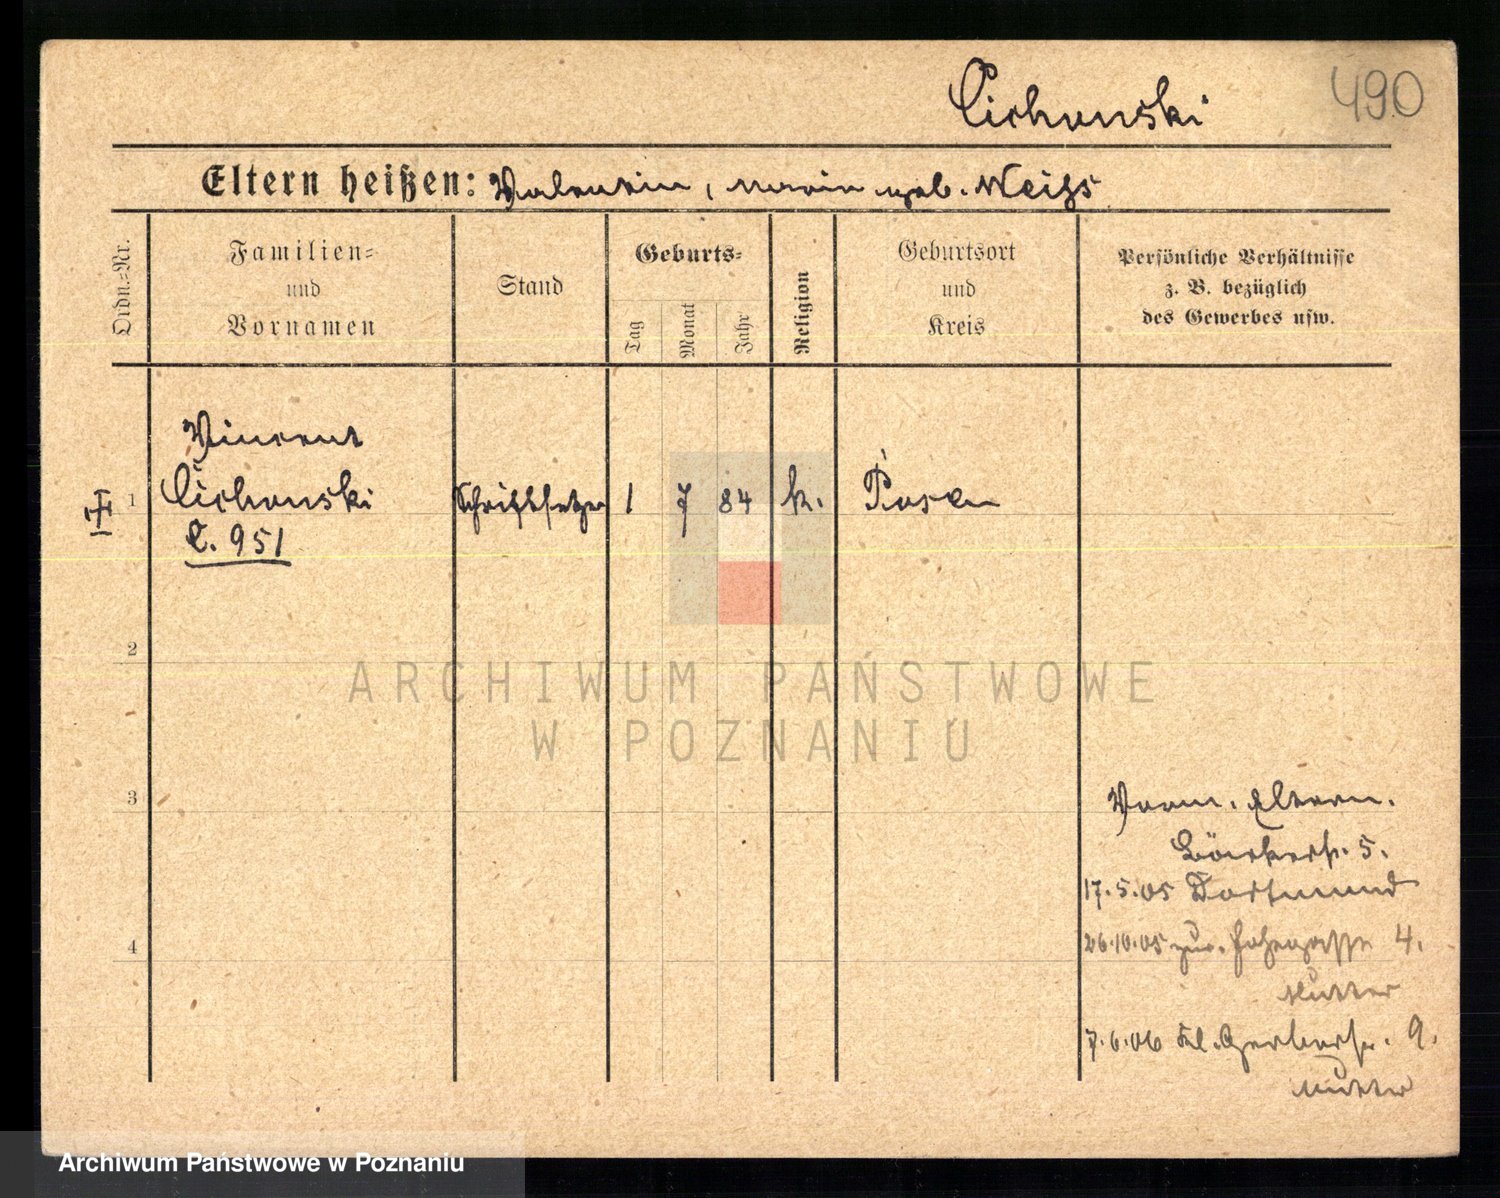 Cichonski
490
Eltern heißen: Valentin, Marie geb. Weiss
Ordn.-Nr.
Familien-
und
Vornamen
Stand
Geburts-
Tag
Monat
Jahr
Religion
Geburtsort
und
Kreis
Persönliche Verhältnisse
z. B. bezüglich
des Gewerbes usw.
Vincent
1 Cichonski Schriftsetzer 1 7 84 k. Posen
C. 951
2
ARCHIWUM PAŃSTWOWE
W POZNANIU
3
Eltern.
Bäckerstr. 5.
17.5.05 Dortmund
4
26.10.05 zur. 4.
Mutter
7.6.06 Kl. Gerberstr. 9.
Mutter
Archiwum Państwowe w Poznaniu